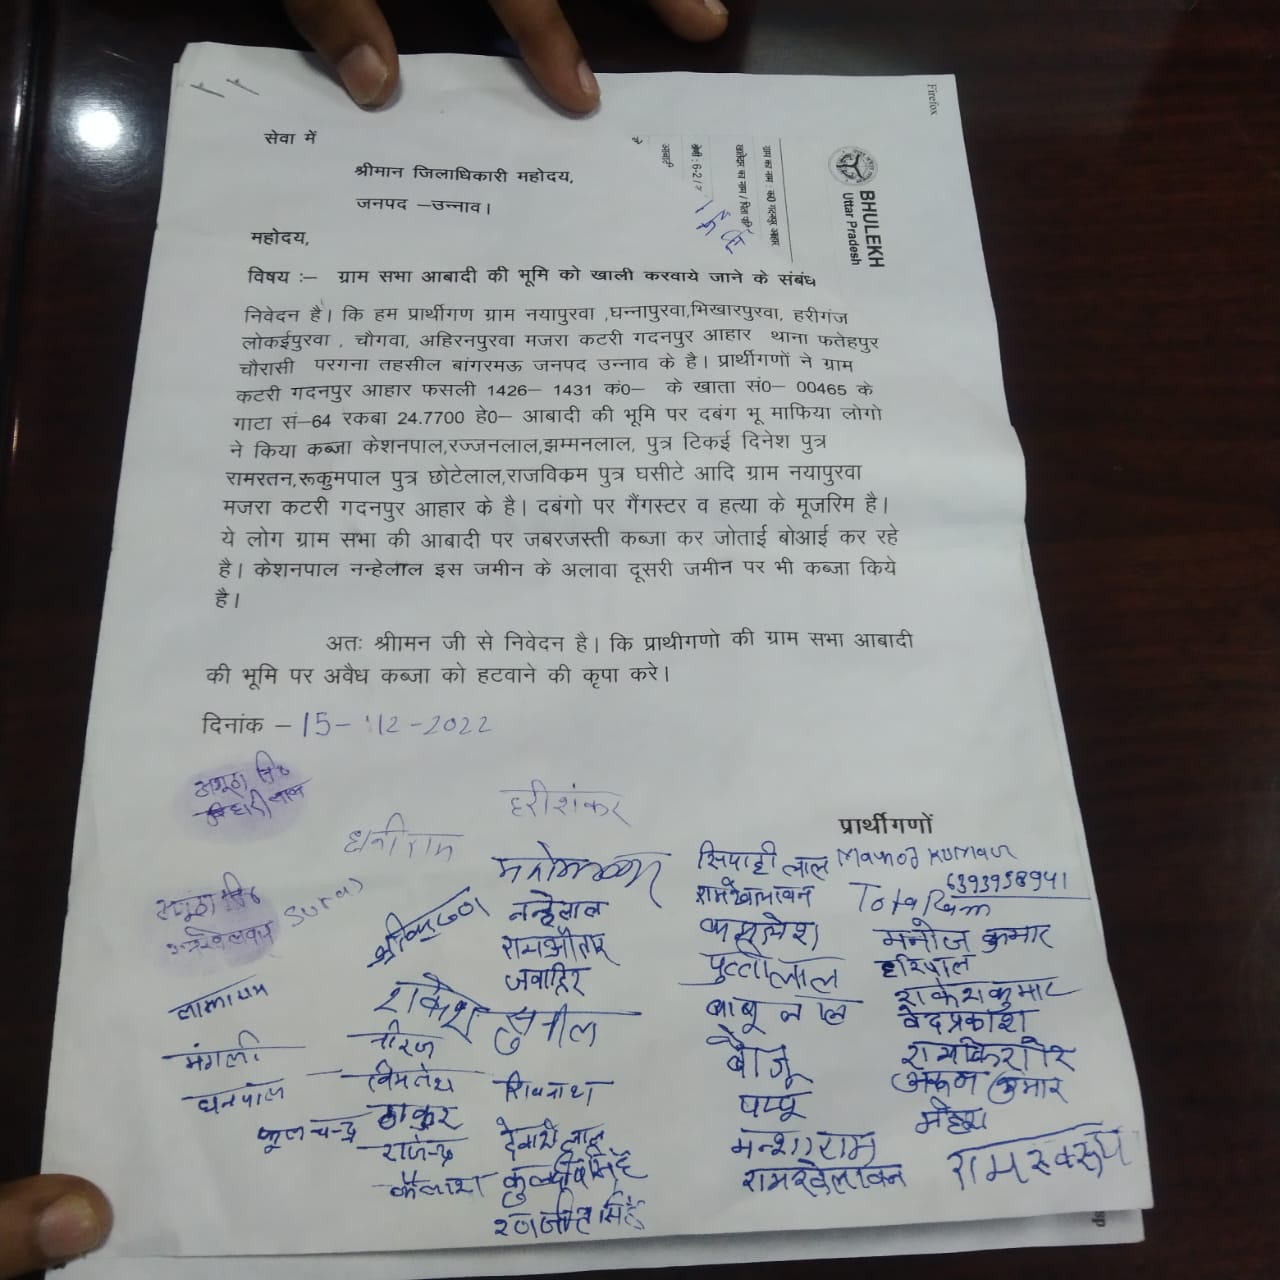 सेवा में
श्रीमान जिलाधिकारी महोदय,
जनपद –उन्नाव।
महोदय,
विषय :– ग्राम सभा आबादी की भूमि को खाली करवाये जाने के संबंध
निवेदन है। कि हम प्रार्थीगण ग्राम नयापुरवा ,घन्नापुरवा,भिखारपुरवा, हरीगंज
लोकईपुरवा , चौगवा, अहिरनपुरवा मजरा कटरी गदनपुर आहार थाना फतेहपुर
चौरासी परगना तहसील बांगरमऊ जनपद उन्नाव के है। प्रार्थीगणों ने ग्राम
कटरी गदनपुर आहार फसली 1426– 1431 कं0– के खाता सं0– 00465 के
गाटा सं–64 रकबा 24.7700 हे0– आबादी की भूमि पर दबंग भू माफिया लोगो
ने किया कब्जा केशनपाल,रज्जनलाल,झम्मनलाल, पुत्र टिकई दिनेश पुत्र
रामरतन,रूकुमपाल पुत्र छोटेलाल,राजविकम पुत्र घसीटे आदि ग्राम नयापुरवा
मजरा कटरी गदनपुर आहार के है। दबंगो पर गैंगस्टर व हत्या के मूजरिम है।
ये लोग ग्राम सभा की आबादी पर जबरजस्ती कब्जा कर जोताई बोआई कर रहे
है। केशनपाल नन्हेलाल इस जमीन के अलावा दूसरी जमीन पर भी कब्जा किये
है।
अतः श्रीामन जी से निवेदन है। कि प्राथीगणो की ग्राम सभा आबादी
की भूमि पर अवैध कब्जा को हटवाने की कृपा करे।
दिनांक –15-12-2022
Firefox
BHULEKH
Uttar Pradesh
आबादी
प्रार्थीगणों
हरीशंकर
धनीराम
नन्हेलाल
रामऔतार
जवाहिर
राकेश
सुनील
मंगली
धनपाल
नीरज
विमलेश
शिवनाथ
फूलचन्द्र
ठाकुर
राजेन्द्र
कैलाश
कुलदीप सिंह
रणजीत सिंह
सिपाही लाल
रामखेलावन
कमलेश
पुत्तीलाल
बाबू लाल
बैजू
पप्पू
मन्शाराम
रामखेलावन
Manoj Kumar
6393958941
Tota Ram
मनोज कुमार
हरिपाल
राकेश कुमार
वेदप्रकाश
रामकिशोर
महेश
रामस्वरूप